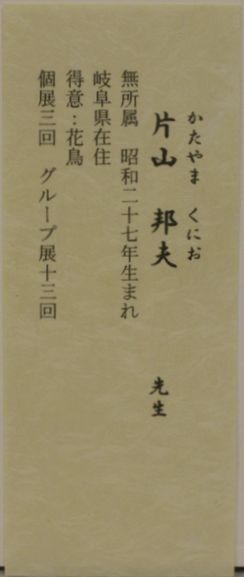 かたやま くにお
片山 邦夫 先生
無所属 昭和二十七年生まれ
岐阜県在住
得意：花鳥
個展三回 グループ展十三回